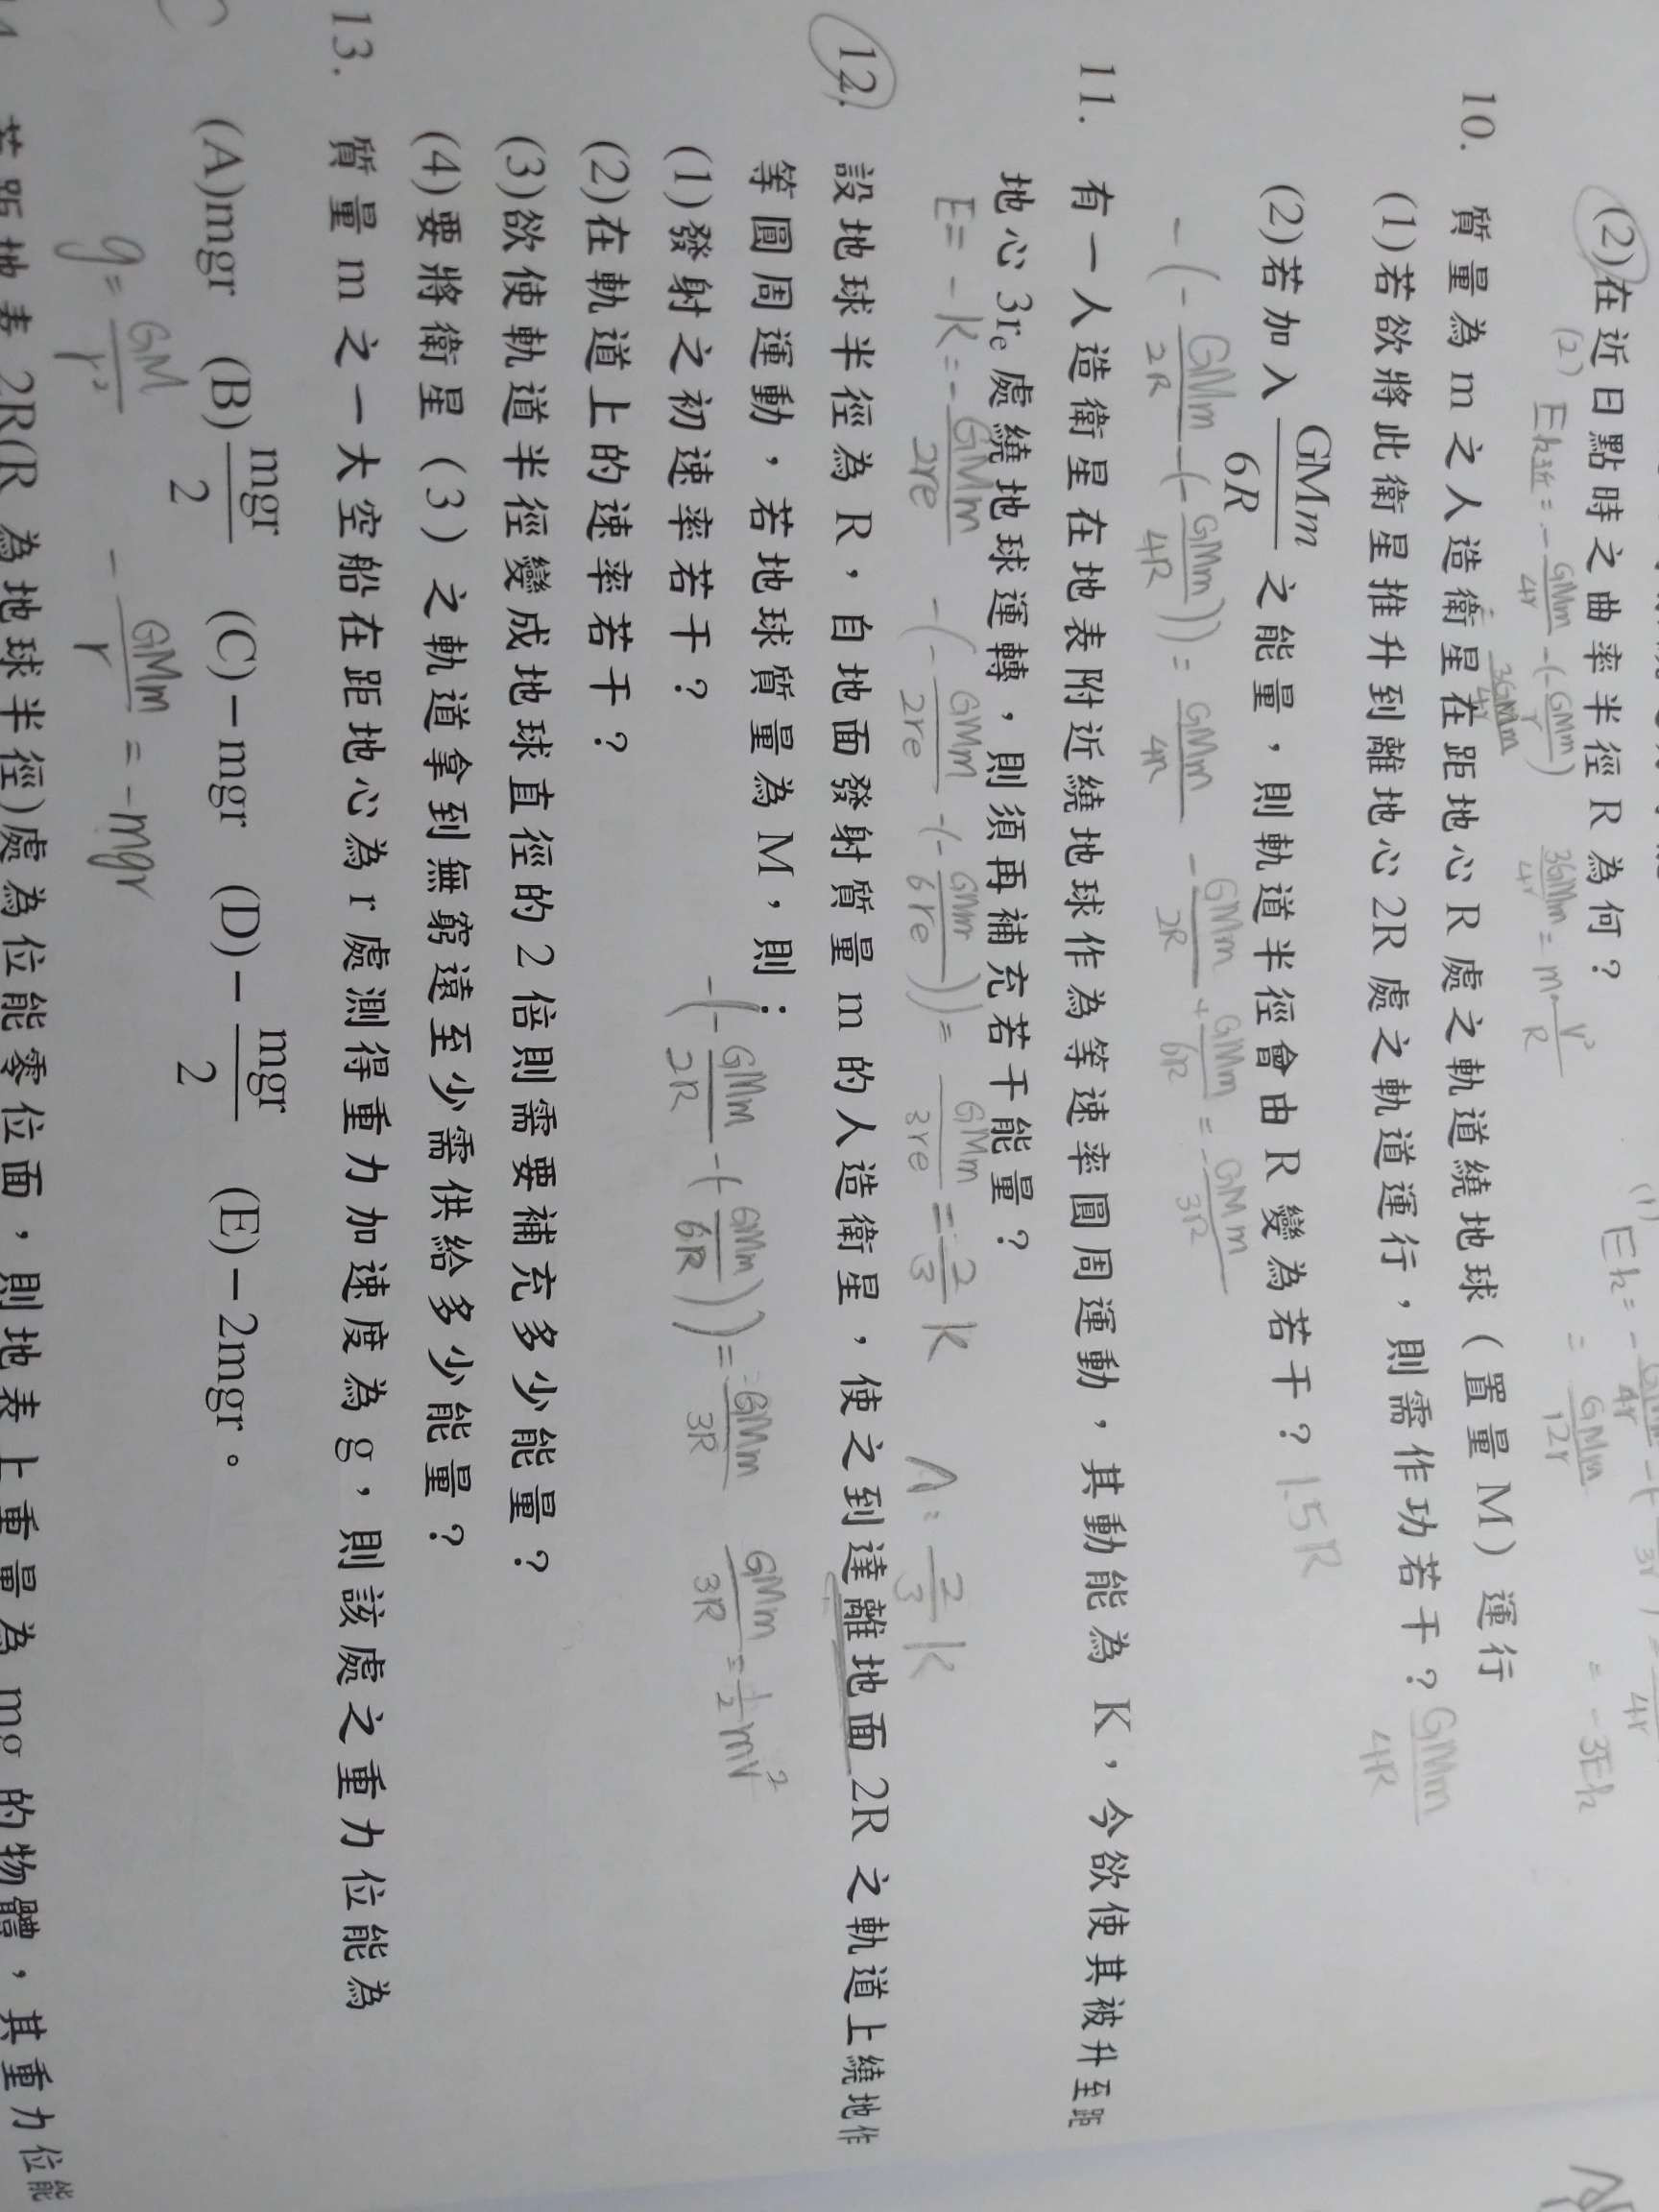 (2)在近日點時之曲率半徑 R 為何？
(2) Ek近 = -GMm/4r -(-GMm/r)
3GMm/4r
3GMm/4r = m·V²/R
= GMm/12r
= -3Ek
10. 質量為 m 之人造衛星在距地心 R 處之軌道繞地球（置量 M）運行
(1)若欲將此衛星推升到離地心 2R 處之軌道運行，則需作功若干？ GMm/4R
(2)若加入 GMm/6R 之能量，則軌道半徑會由 R 變為若干？ 1.5R
-(-GMm/2R -(-GMm/4R)) = GMm/4R
-GMm/2R + GMm/6R = -GMm/3R
11. 有一人造衛星在地表附近繞地球作為等速率圓周運動，其動能為 K，今欲使其被升至距
地心 3re 處繞地球運轉，則須再補充若干能量？
E = -K = -GMm/2re
-(-GMm/2re -(-GMm/6re)) = GMm/3re = 2/3 K
A: 2/3 K
12. 設地球半徑為 R，自地面發射質量 m 的人造衛星，使之到達離地面 2R 之軌道上繞地作
等圓周運動，若地球質量為 M，則：
(1)發射之初速率若干？
-(-GMm/2R -(-GMm/6R)) = GMm/3R
GMm/3R = 1/2 mV²
(2)在軌道上的速率若干？
(3)欲使軌道半徑變成地球直徑的 2 倍則需要補充多少能量？
(4)要將衛星（3）之軌道拿到無窮遠至少需供給多少能量？
13. 質量 m 之一大空船在距地心為 r 處測得重力加速度為 g，則該處之重力位能為
(A)mgr (B)mgr/2 (C)－mgr (D)－mgr/2 (E)－2mgr。
g = GM/r²
-GMm/r = -mgr
若距地表 2R(R 為地球半徑)處為位能零位面，則地表上重量為 mg 的物體，其重力位能